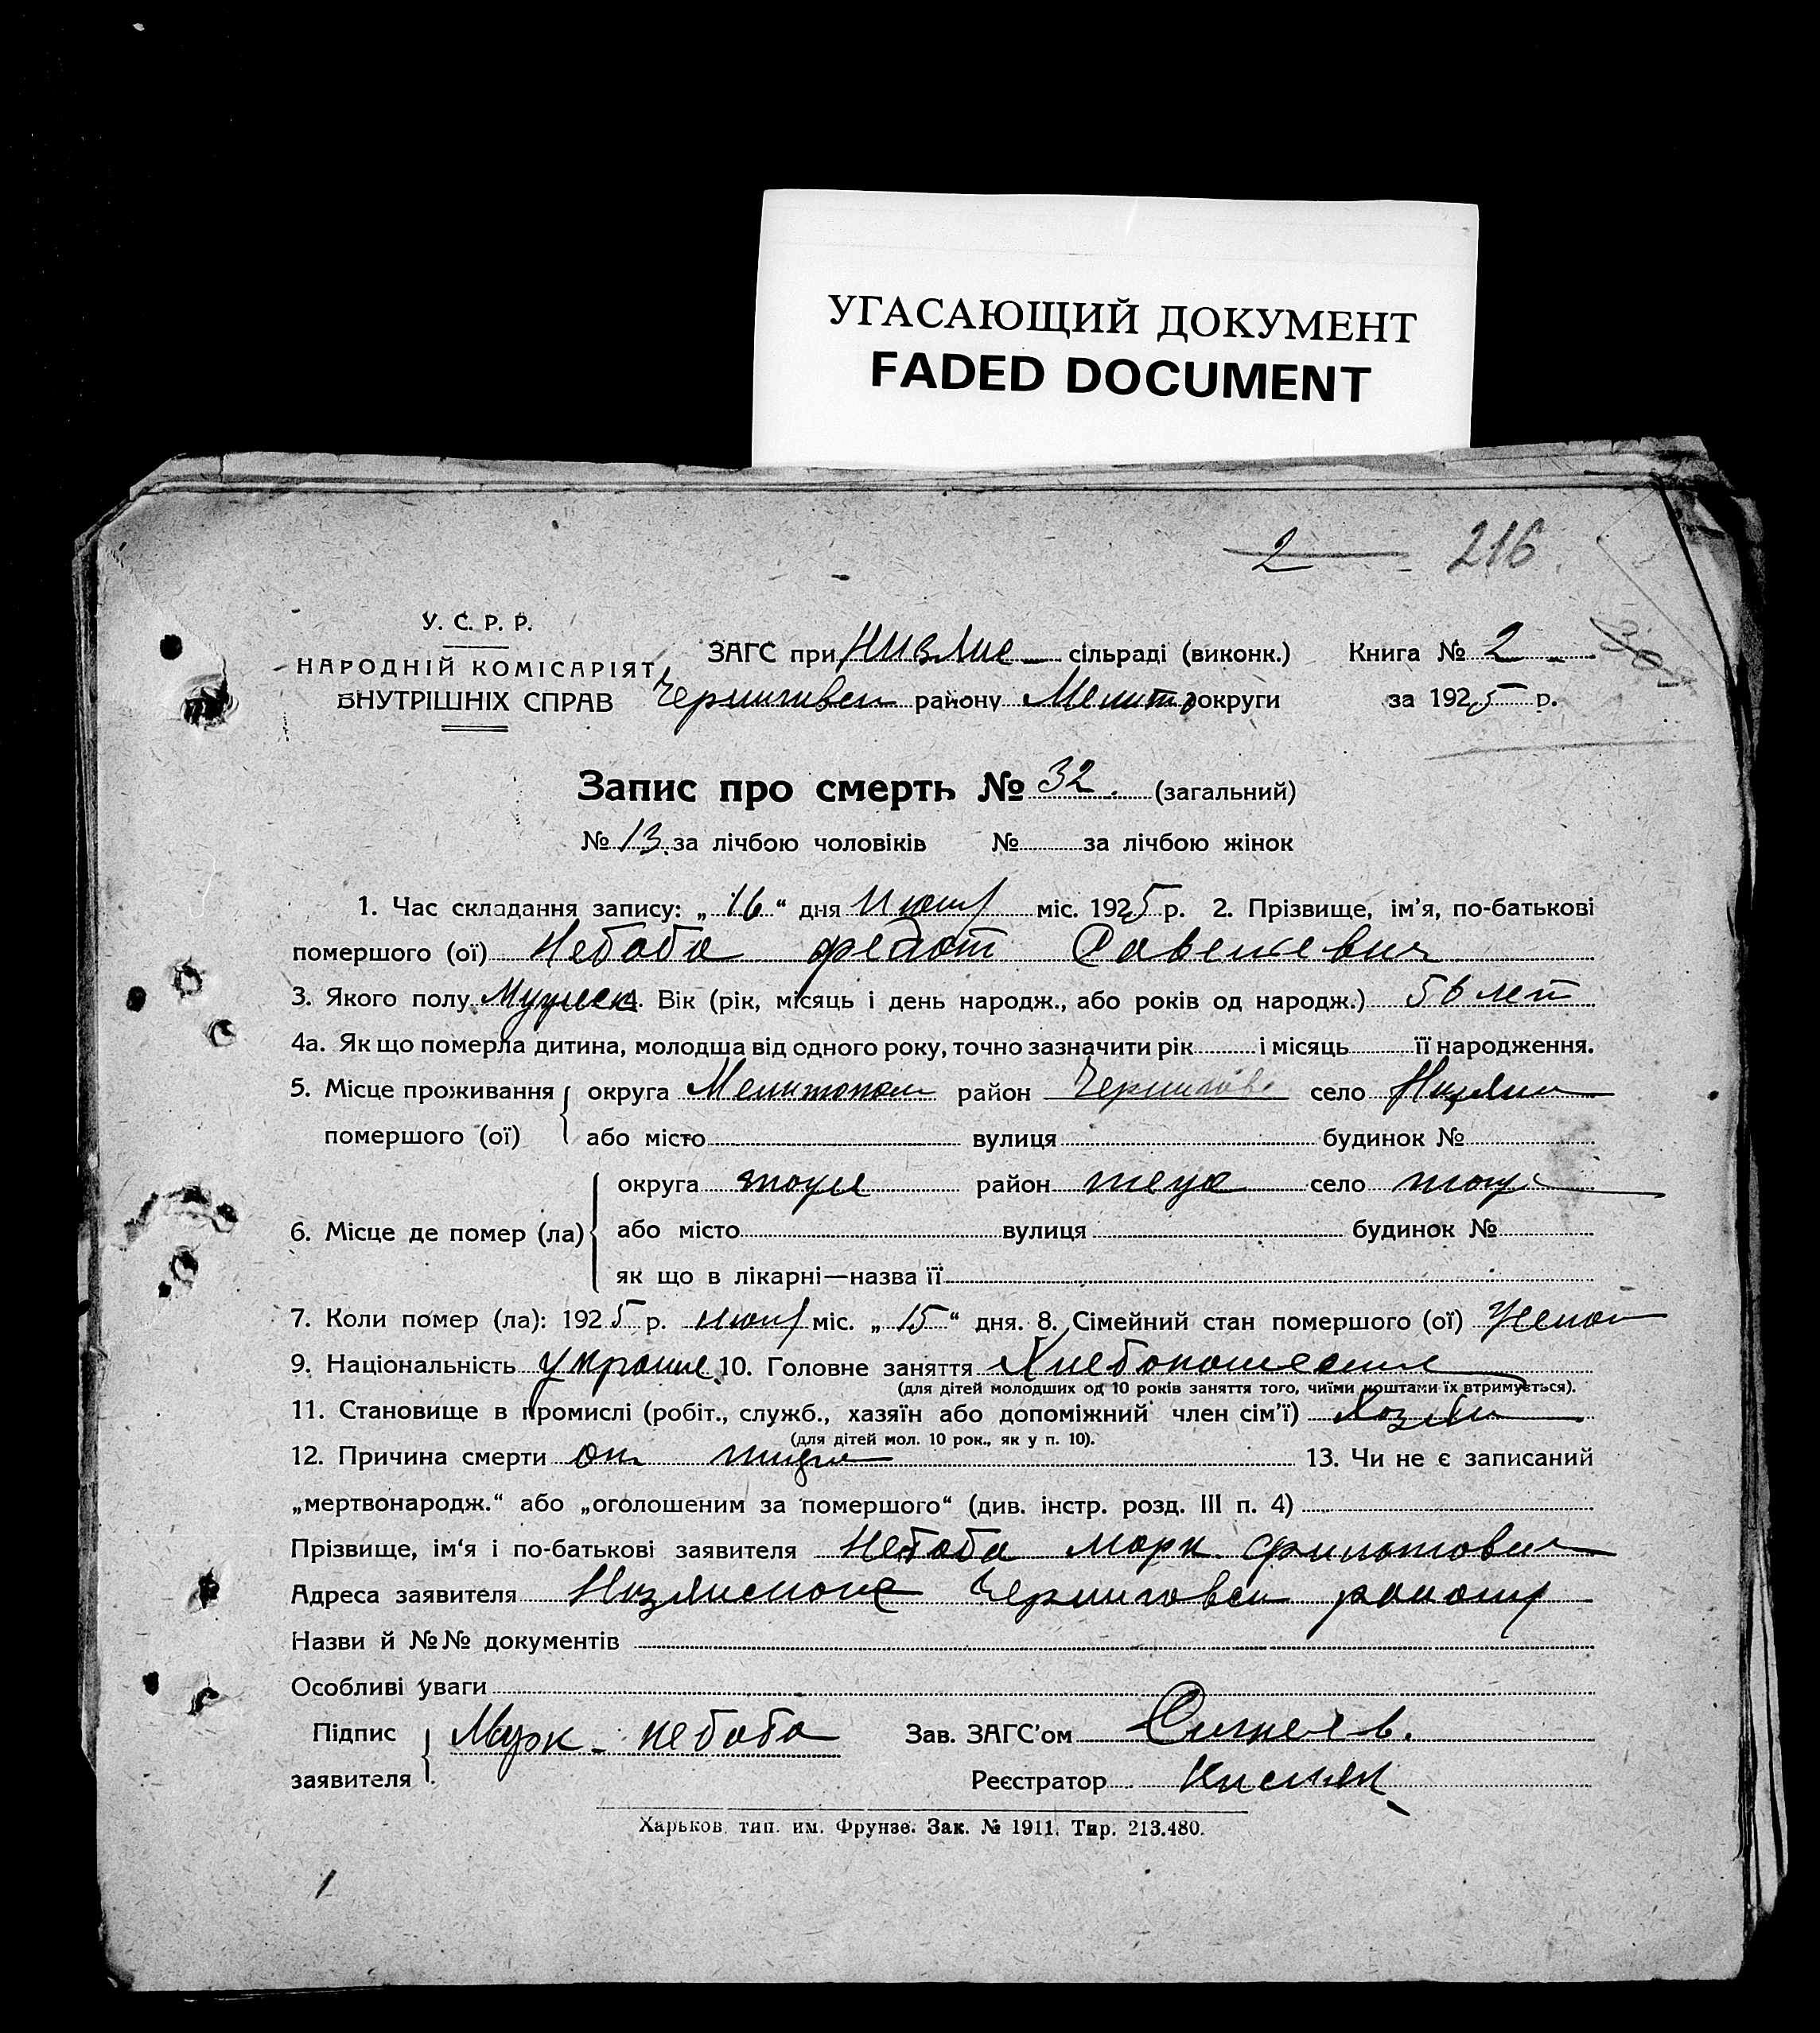 УГАСАЮЩИЙ ДОКУМЕНТ
FADED DOCUMENT
2 216
У. С. Р. Р.
НАРОДНІЙ КОМІСАРІЯТ
ВНУТРІШНІХ СПРАВ
ЗАГС при сільраді (виконк.) Книга № 2
району округи за 1925 р.
Запис про смерть № 32. (загальний)
№ 13. за лічбою чоловіків № за лічбою жінок
1. Час складання запису: „16“ дня міс. 1925 р. 2. Прізвище, ім’я, по-батькові
помершого (ої) Небаба Федот Савельевич
3. Якого полу Мужск 4. Вік (рік, місяць і день народж., або років од народж.) 56 лет
4а. Як що померла дитина, молодша від одного року, точно зазначити рік і місяць її народження.
5. Місце проживання округа Мелитопол район Чернигов село
помершого (ої) або місто вулиця будинок №
округа тоже район село тоже
6. Місце де помер (ла) або місто вулиця будинок №
як що в лікарні—назва її
7. Коли помер (ла): 1925 р. міс. „15“ дня. 8. Сімейний стан помершого (ої) Женат
9. Національність Украине 10. Головне заняття Хлебопашество
(для дітей молодших од 10 років заняття того, чиїми коштами їх втримується).
11. Становище в промислі (робіт., служб., хазяїн або допоміжний член сім’ї) Хозяин
(для дітей мол. 10 рок., як у п. 10).
12. Причина смерти от тифа 13. Чи не є записаний
„мертвонародж.“ або „оголошеним за помершого“ (див. інстр. розд. III п. 4)
Прізвище, ім‘я і по-батькові заявителя Небаба Марк
Адреса заявителя Черниговск району
Назви й №№ документів
Особливі уваги
Підпис
заявителя Марк Небаба Зав. ЗАГС’ом
Реєстратор
Харьков, тип. им. Фрунзе. Зак. № 1911. Тир. 213.480.